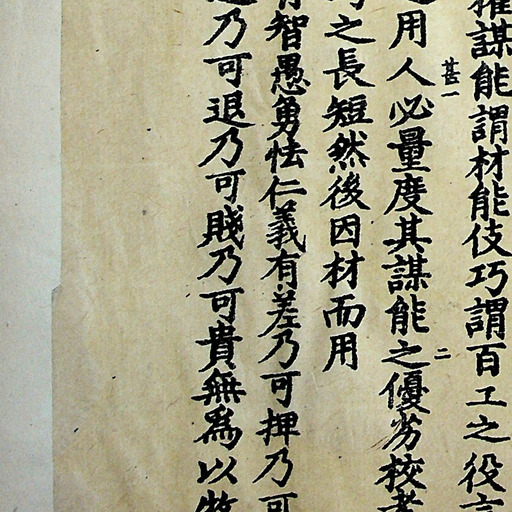 謀能謂材能伎巧謂百工之役言
甚一
用人必量度其謀能之優劣校考
二
之長短然後因材而用
智愚勇怯仁義有差乃可押乃可
乃可退乃可賤乃可貴無為以